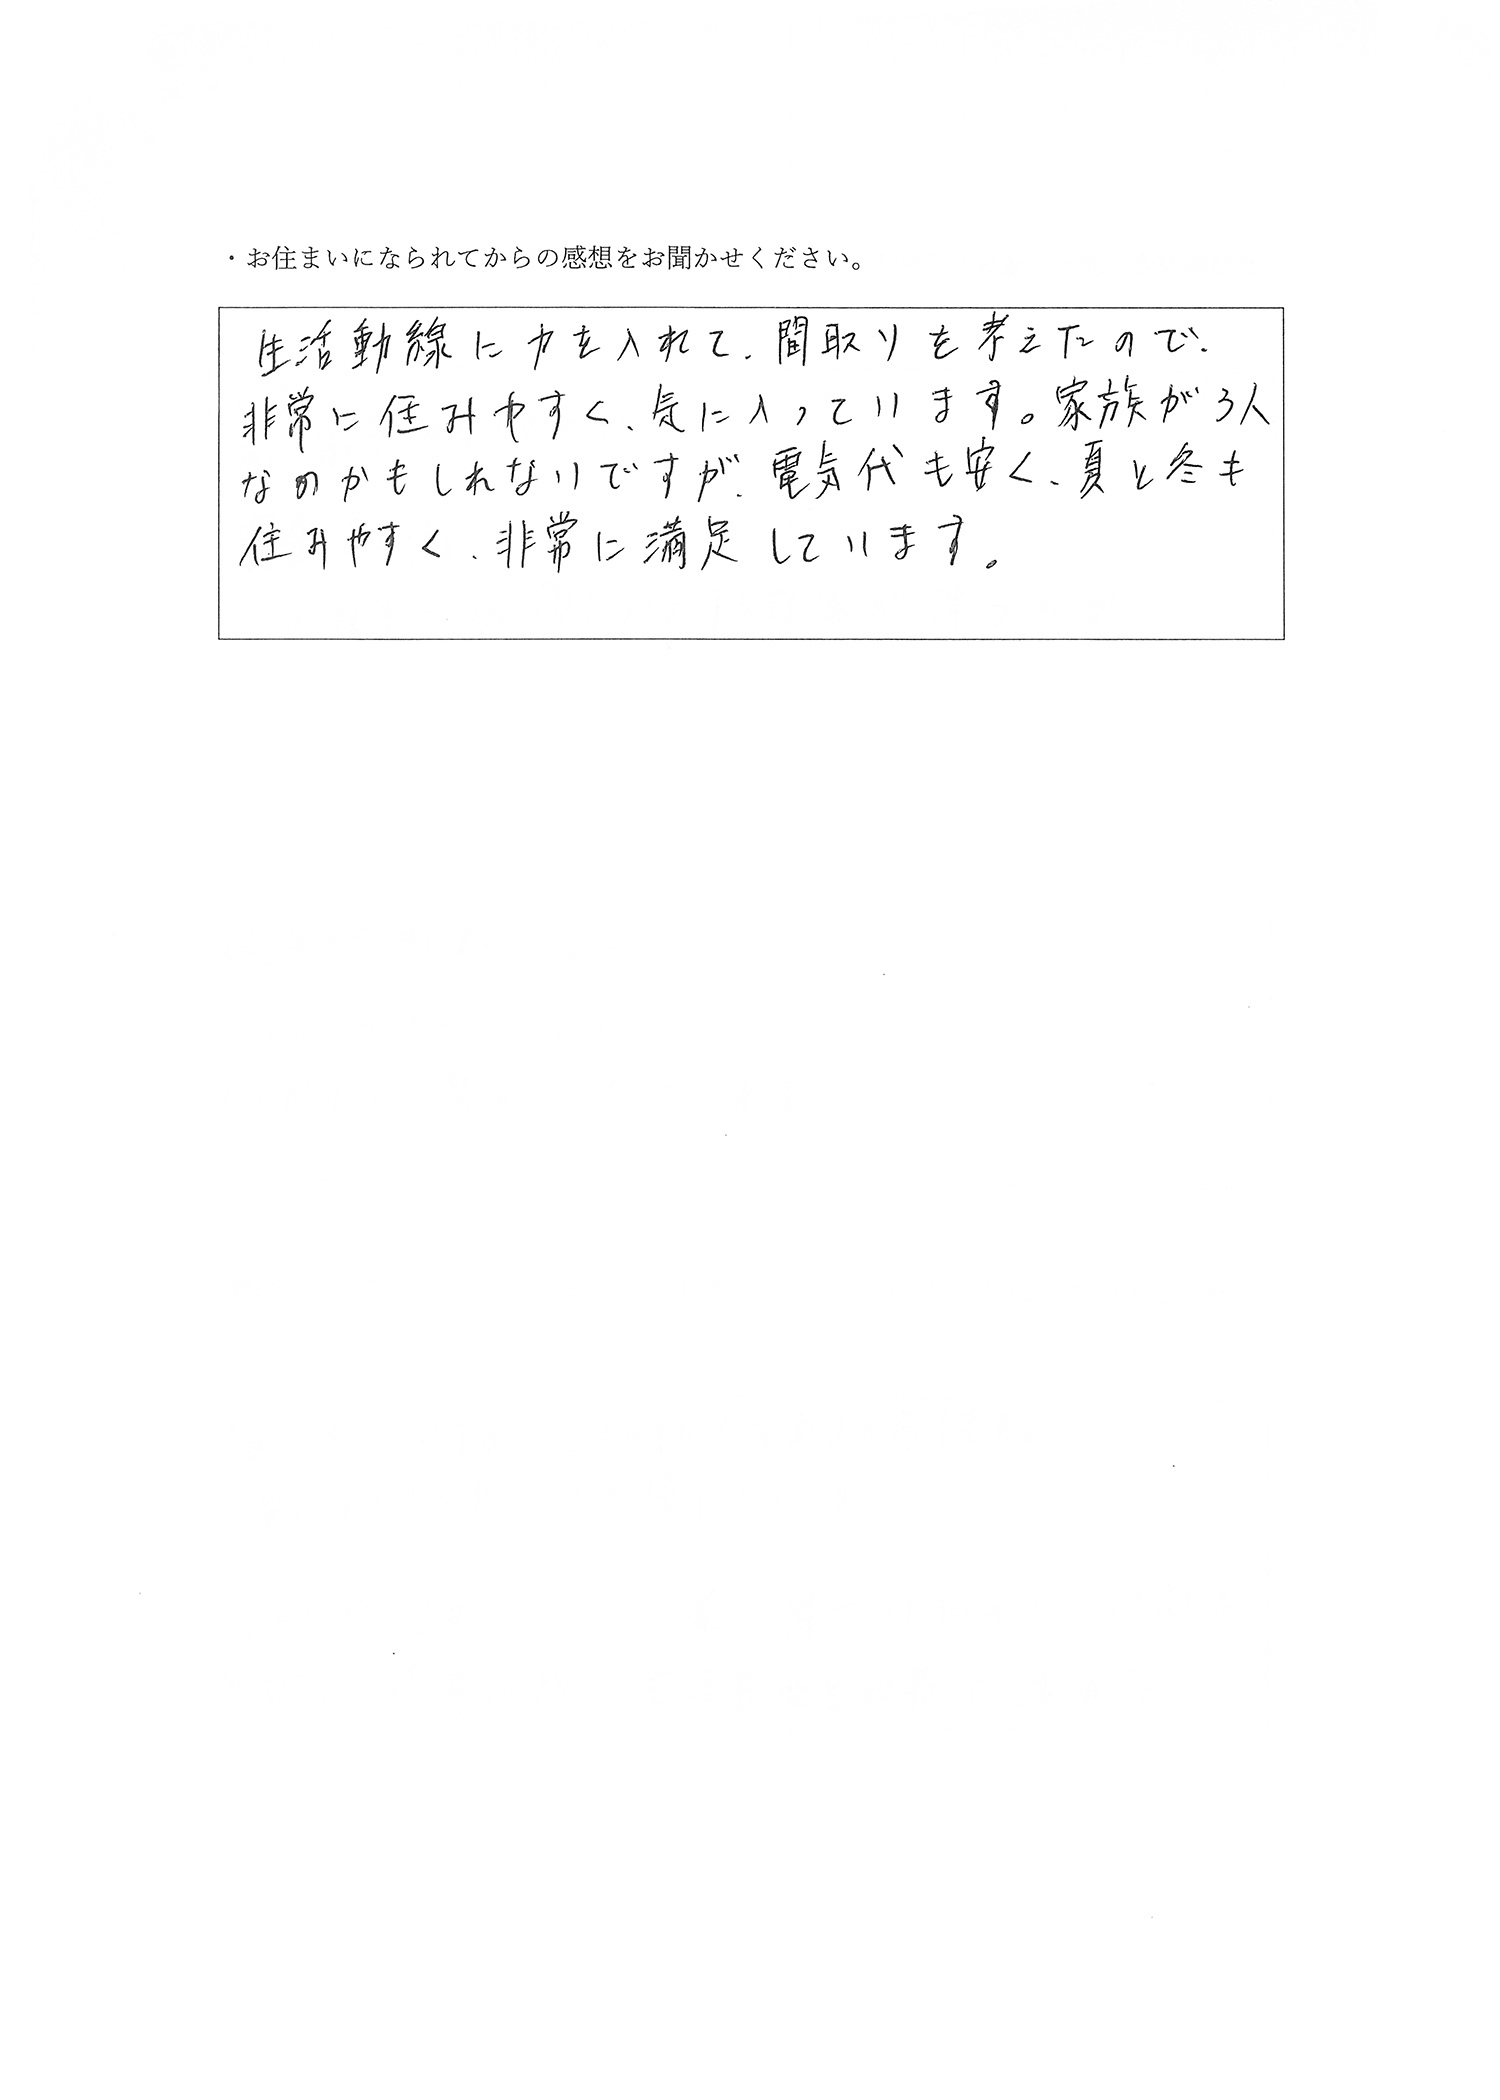 ・お住まいになられてからの感想をお聞かせください。
生活動線に力を入れて、間取りを考えたので、
非常に住みやすく、気に入っています。家族が3人
なのかもしれないですが、電気代も安く、夏と冬も
住みやすく、非常に満足しています。